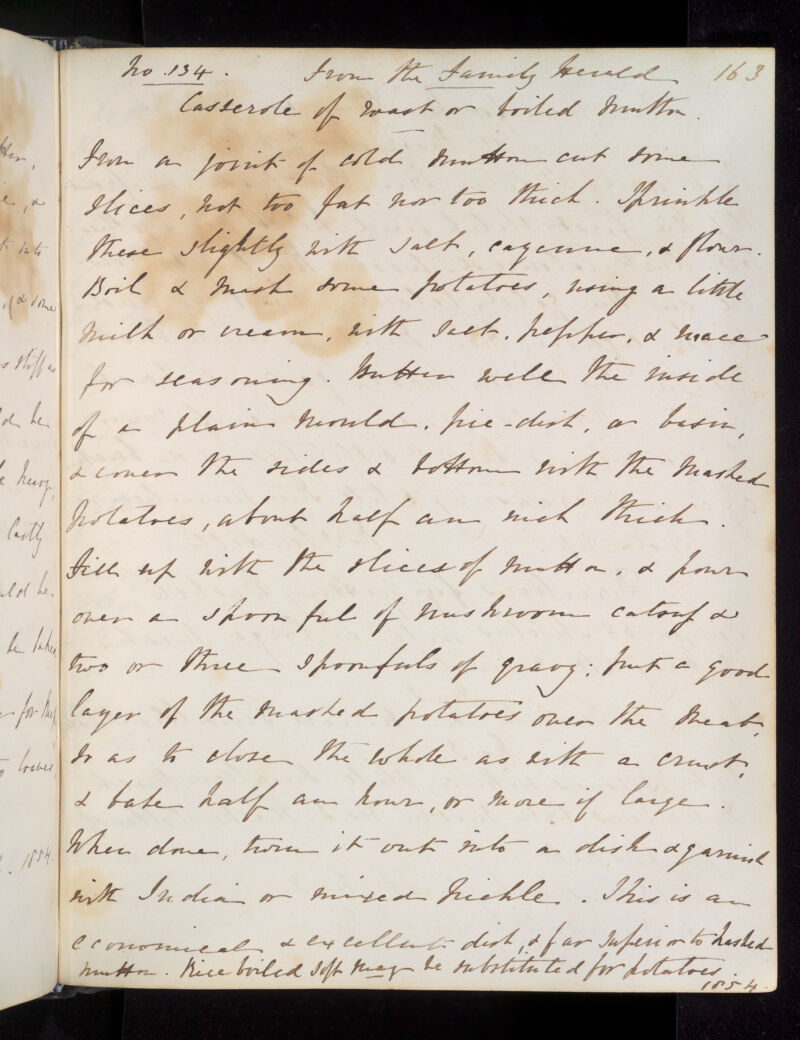 No. 134. From the Family Herald 163
Casserole of roast or boiled mutton.
From a joint of cold mutton cut some
slices, not too fat nor too thick. Sprinkle
these slightly with salt, cayenne, & flour.
Boil & mash some potatoes, using a little
milk or cream, with salt, pepper, & mace
for seasoning. Butter well the inside
of a plain mould, pie-dish, or basin,
& cover the sides & bottom with the mashed
potatoes, about half an inch thick.
Fill up with the slices of mutton, & pour
over a spoonful of mushroom catsup &
two or three spoonfuls of gravy; put a good
layer of the mashed potatoes over the meat,
so as to close the whole as with a crust,
& bake half an hour, or more if large.
When done, turn it out into a dish & garnish
with Indian or mixed pickle. This is an
economical & excellent dish, & far superior to hashed
mutton. Rice boiled soft may be substituted for potatoes.
1854.
& some
stiff as
be
heavy,
Lastly
be
be baked
for
loaves
1854.